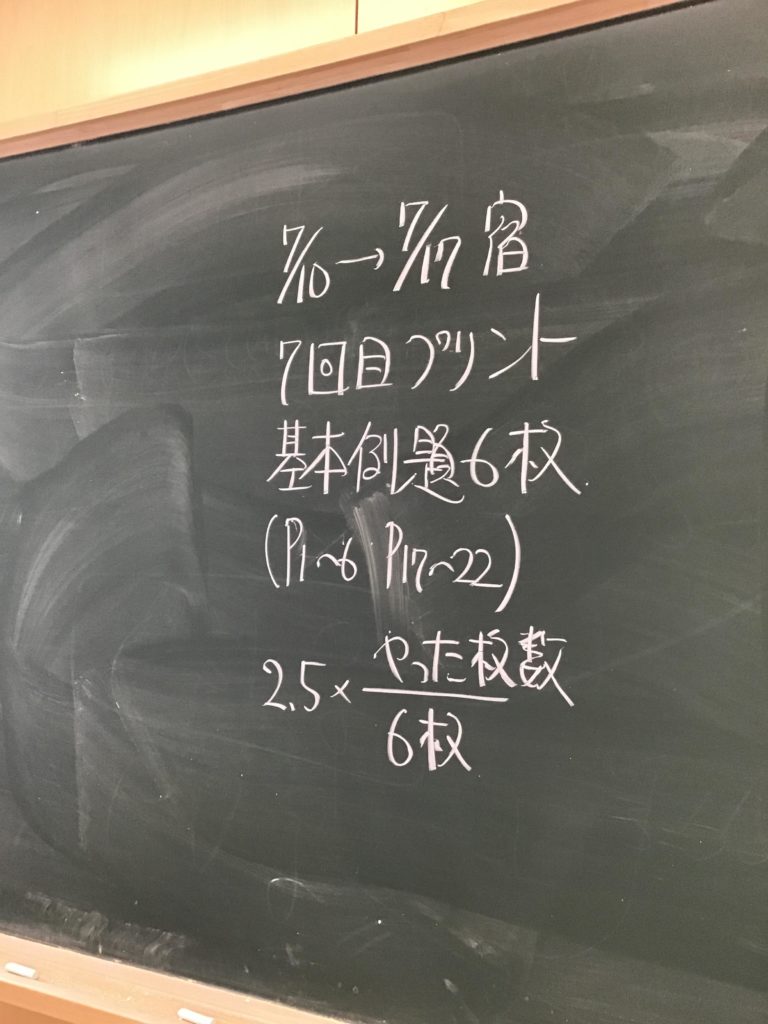 7/10→7/17 宿
7回目プリント
基本例題6枚
(P1~6 P17~22)
2.5×やった枚数/6枚